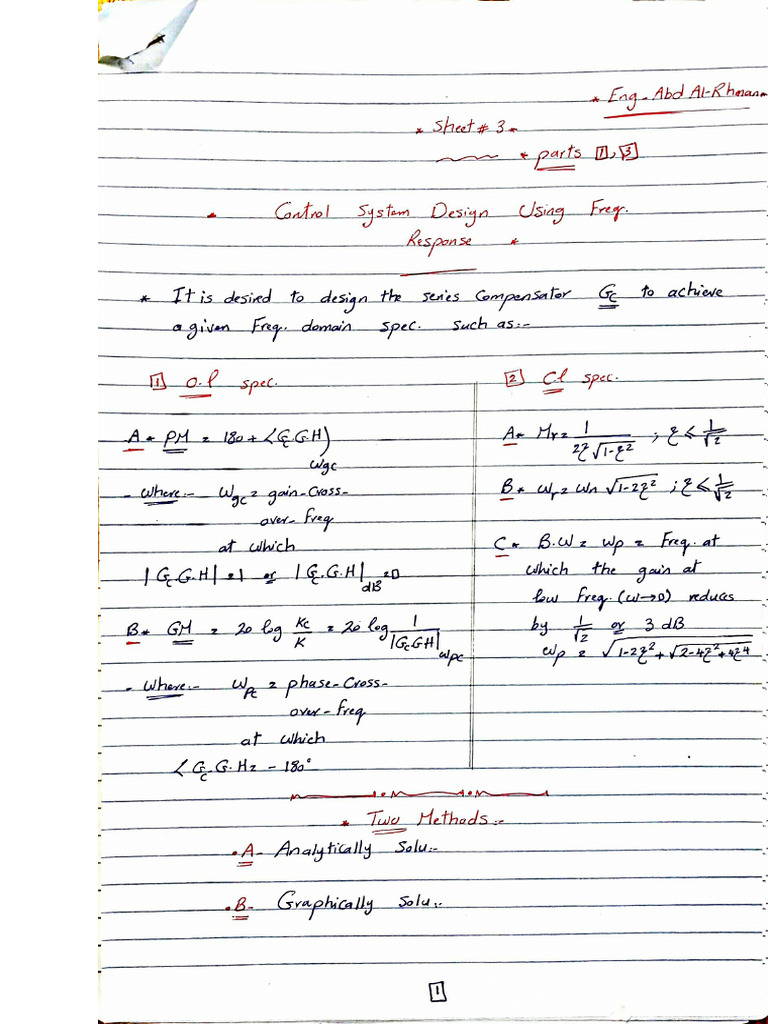 * Eng. Abd Al-Rhman *
* Sheet # 3 *
* parts 1, 3
* Control System Design Using Freq.
Response *
* It is desired to design the series Compensator Gc to achieve
a given Freq. domain spec. such as:-
1 O.l spec.
A* PM = 180 + ∠Gc.G.H)ωgc
- where:- ωgc = gain-Cross-
over-freq
at which
|Gc G.H| = 1 or |Gc.G.H|dB = 0
B* GM = 20 log Kc/K = 20 log 1/|GcGH|ωpc
- where:- ωpc = phase-Cross-
over-freq
at which
∠Gc.G.H = -180°
2 C.l spec.
A* Mr = 1/(2ζ√(1-ζ²)) ; ζ ≤ 1/√2
B* ωr = ωn √(1-2ζ²) ; ζ ≤ 1/√2
C* B.W = ωp = Freq. at
which the gain at
low freq. (ω→0) reduces
by 1/√2 or 3 dB
ωp = √(1-2ζ² + √(2-4ζ²+4ζ⁴))
* Two Methods:-
• A- Analytically Solu:-
• B- Graphically Solu:-
1